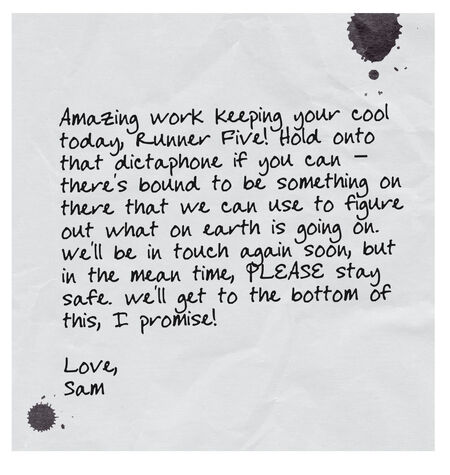 Amazing work keeping your cool
today, Runner Five! Hold onto
that dictaphone if you can –
there's bound to be something on
there that we can use to figure
out what on earth is going on.
We'll be in touch again soon, but
in the mean time, PLEASE stay
safe. We'll get to the bottom of
this, I promise!
Love,
Sam